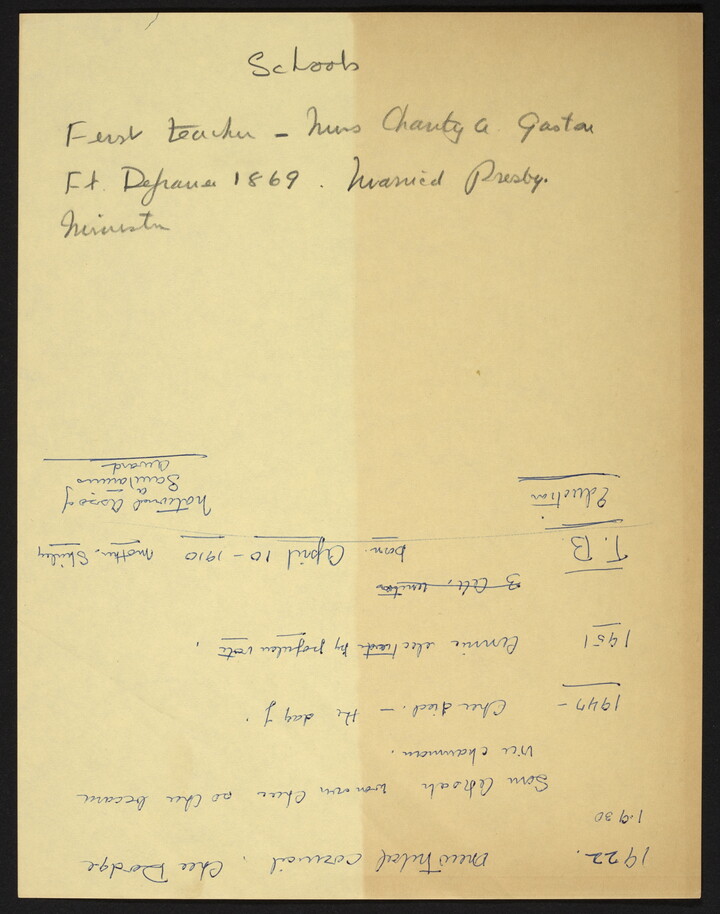 Schools
First teacher - Miss Charity A. Gaston
Ft. Defiance 1869. Married Presby.
Minister
1922. new Tribal council. Chee Dodge
1930
Sam Ahkeah won over Chee so Chee became
vice chairman.
1947- Chee died. - the day of
1951 Annie elected by popular vote.
3 Coll.
T.B. born. April 10-1910 mother, Shirley
Education National Asso of
a
Award